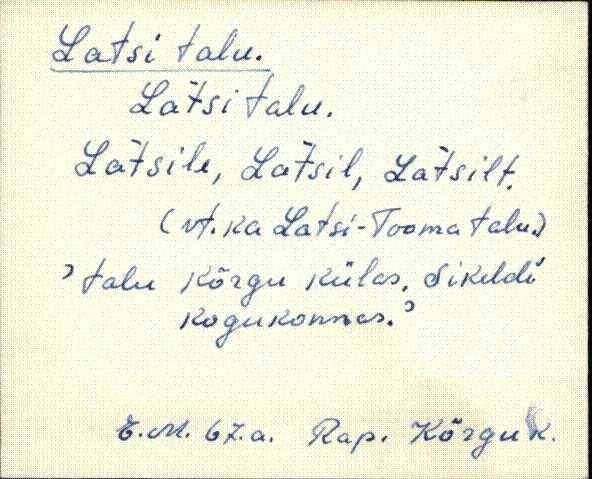 Latsi talu.
Lat́si talu.
Lat́sile, Lat́sil, Lat́silt.
(vt. ka Latsi-Tooma talu.)
’talu Kõrgu külas, Sikeldi
kogukonnas.’
E.M. 67.a. Rap. Kõrgu k.